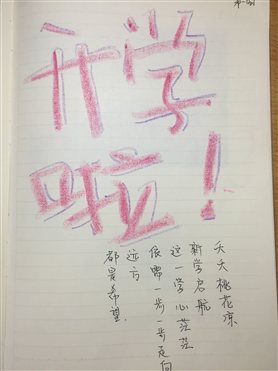 开学
啦!
夭夭桃花凉
新学启航
这一学心茫茫
依一步一步走向
远方
都是希望.